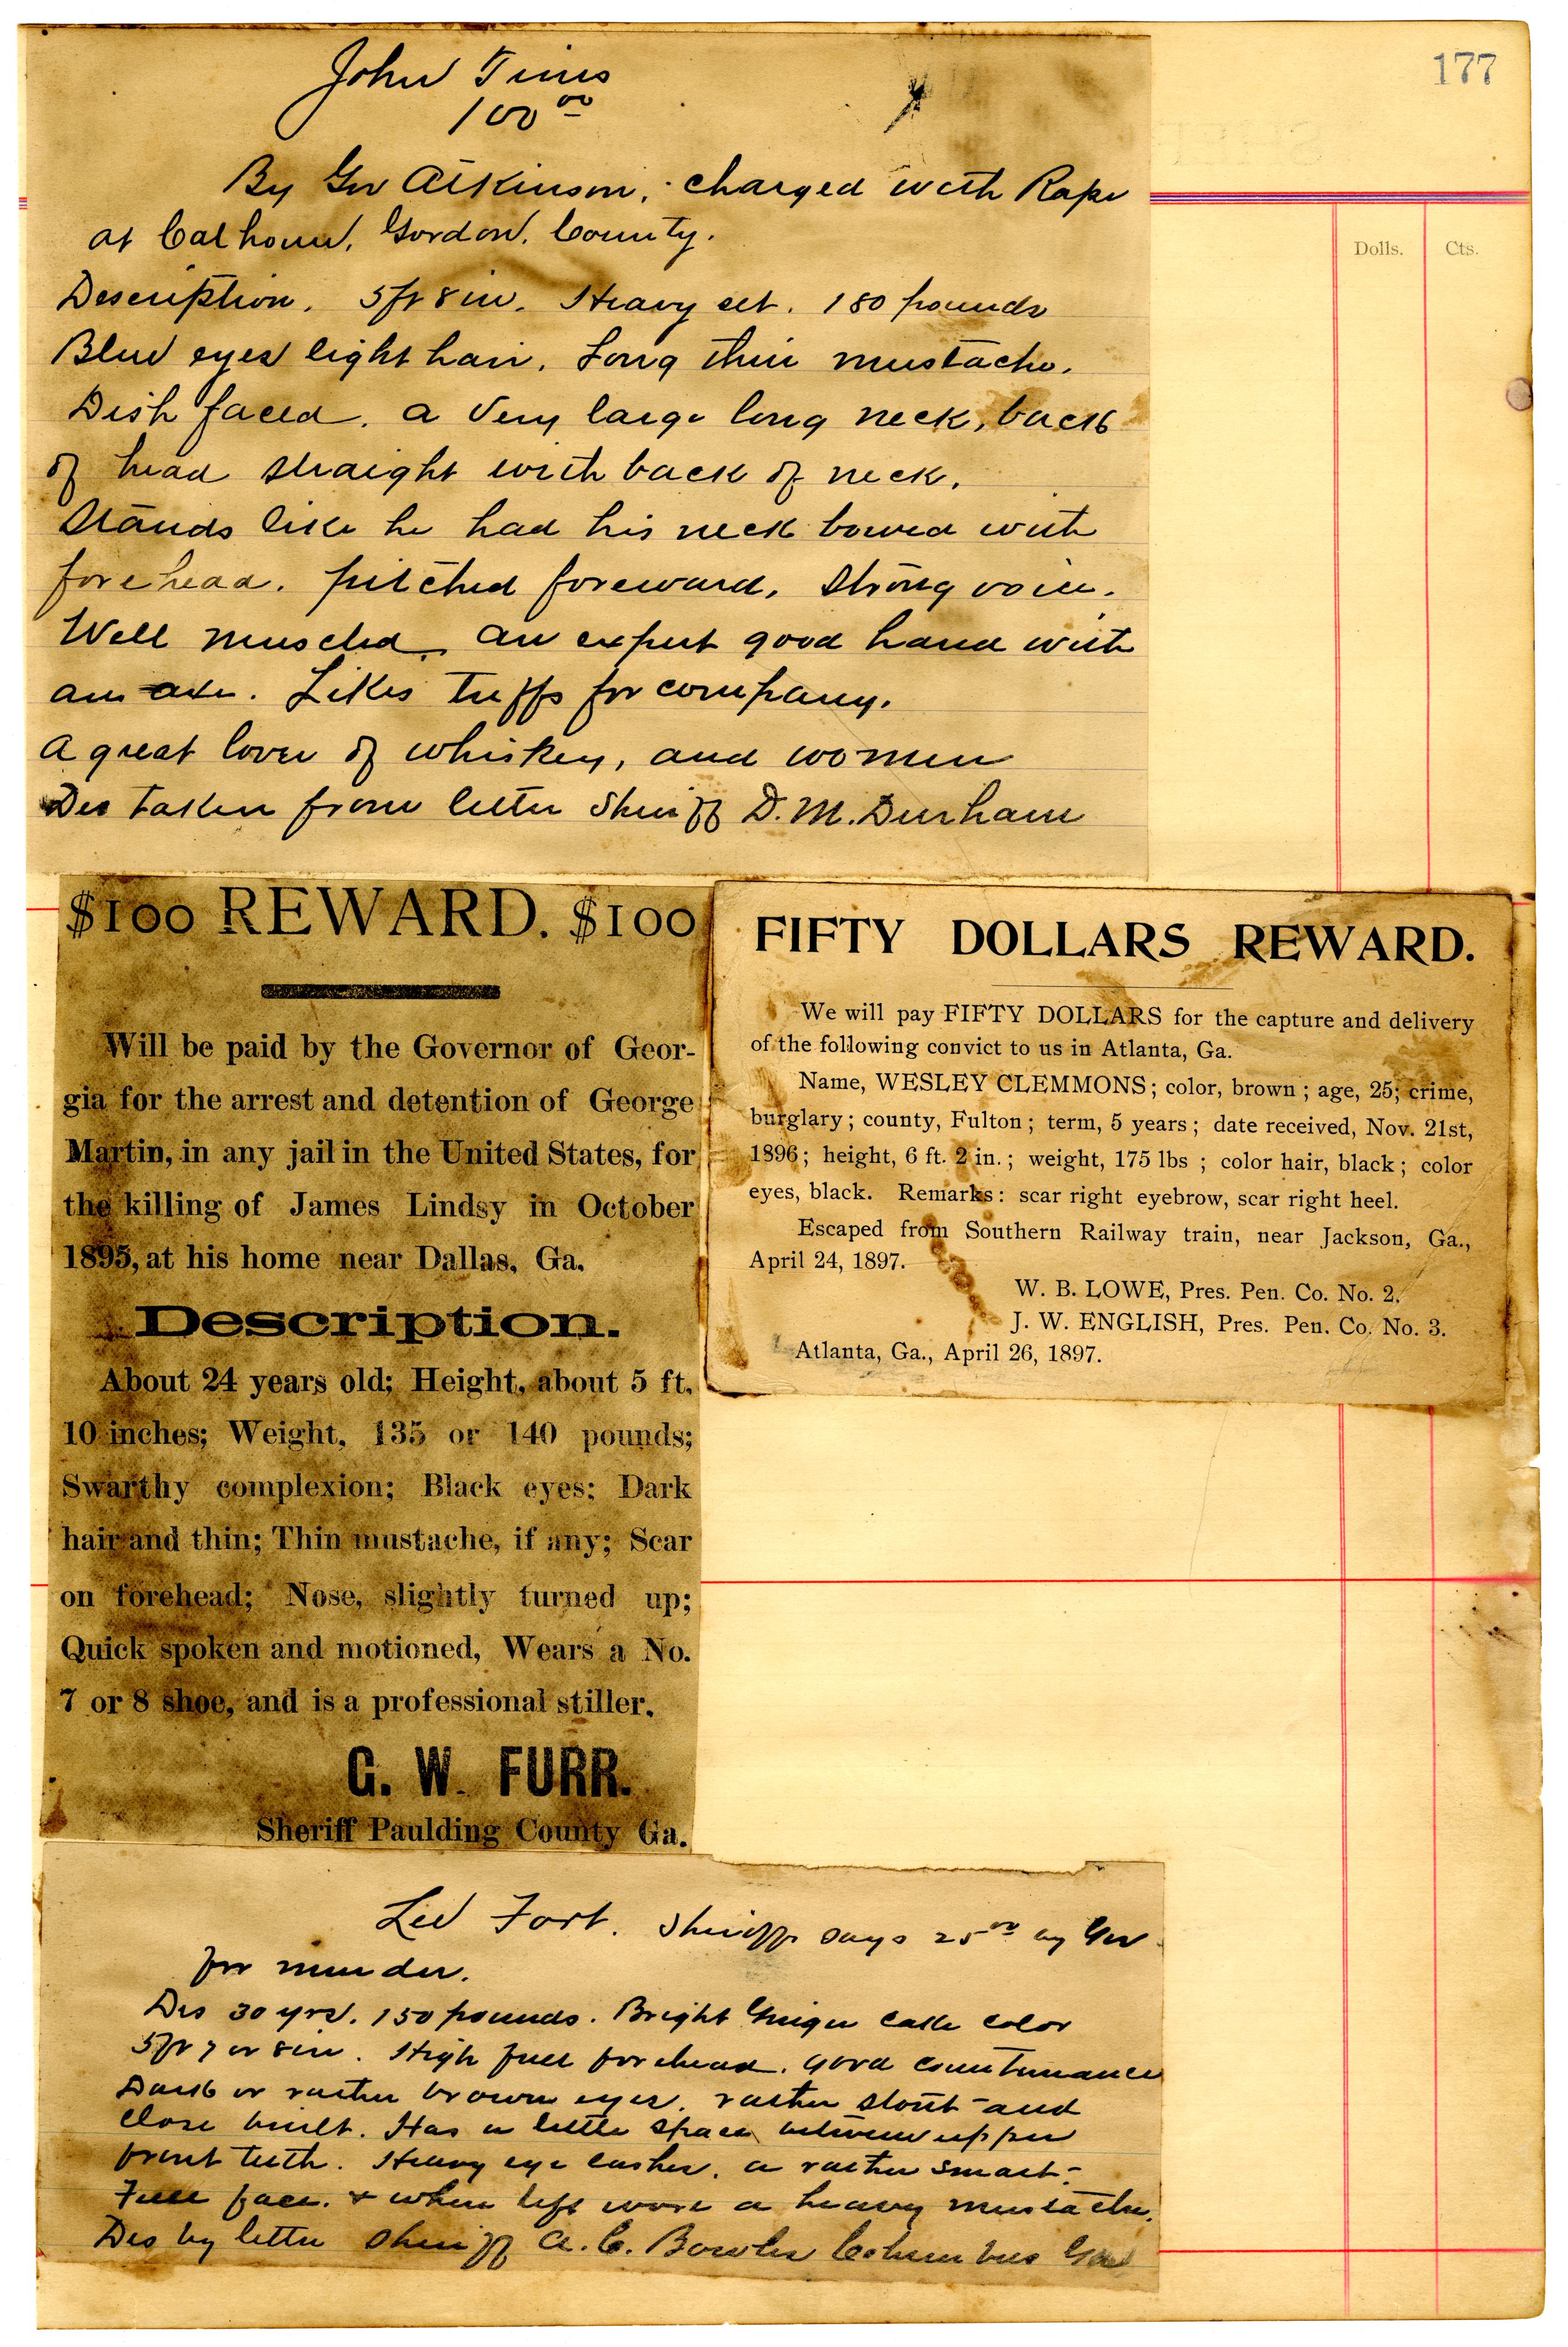 177
Dolls. Cts.
John Tims
100 00
By Gov Atkinson, charged with Rape
at Calhoun, Gordon, County.
Description. 5ft 8in. Heavy set. 180 pounds
Blue eyes light hair. Long thin mustache.
Dish faced. a very large long neck, back
of head straight with back of neck.
Stands like he had his neck bowed with
forehead. pitched foreward. Strong voice.
Well muscled. an expert good hand with
an axe. Likes tuffs for company.
A great lover of whiskey, and women
Des taken from letter Sheriff D. M. Durham
$100 REWARD. $100
Will be paid by the Governor of Geor-
gia for the arrest and detention of George
Martin, in any jail in the United States, for
the killing of James Lindsy in October
1895, at his home near Dallas, Ga.
Description.
About 24 years old; Height, about 5 ft.
10 inches; Weight, 135 or 140 pounds;
Swarthy complexion; Black eyes; Dark
hair and thin; Thin mustache, if any; Scar
on forehead; Nose, slightly turned up;
Quick spoken and motioned, Wears a No.
7 or 8 shoe, and is a professional stiller.
G. W. FURR.
Sheriff Paulding County Ga.
FIFTY DOLLARS REWARD.
We will pay FIFTY DOLLARS for the capture and delivery
of the following convict to us in Atlanta, Ga.
Name, WESLEY CLEMMONS; color, brown; age, 25; crime,
burglary; county, Fulton; term, 5 years; date received, Nov. 21st,
1896; height, 6 ft. 2 in.; weight, 175 lbs; color hair, black; color
eyes, black. Remarks: scar right eyebrow, scar right heel.
Escaped from Southern Railway train, near Jackson, Ga.,
April 24, 1897.
W. B. LOWE, Pres. Pen. Co. No. 2.
J. W. ENGLISH, Pres. Pen. Co. No. 3.
Atlanta, Ga., April 26, 1897.
Lee Fort. Sheriff says 25 00 by Gov
for murder.
Des 30 yrs. 150 pounds. Bright Ginger cake color
5ft 7 or 8in. High full forehead. good countenance
Dark or rather brown eyes. rather stout and
close built. Has a little space between upper
front teeth. Heavy eye lashes. a rather smart
Full face. & when left wore a heavy mustache.
Des by letter Sheriff A. C. Bowles Columbus Ga